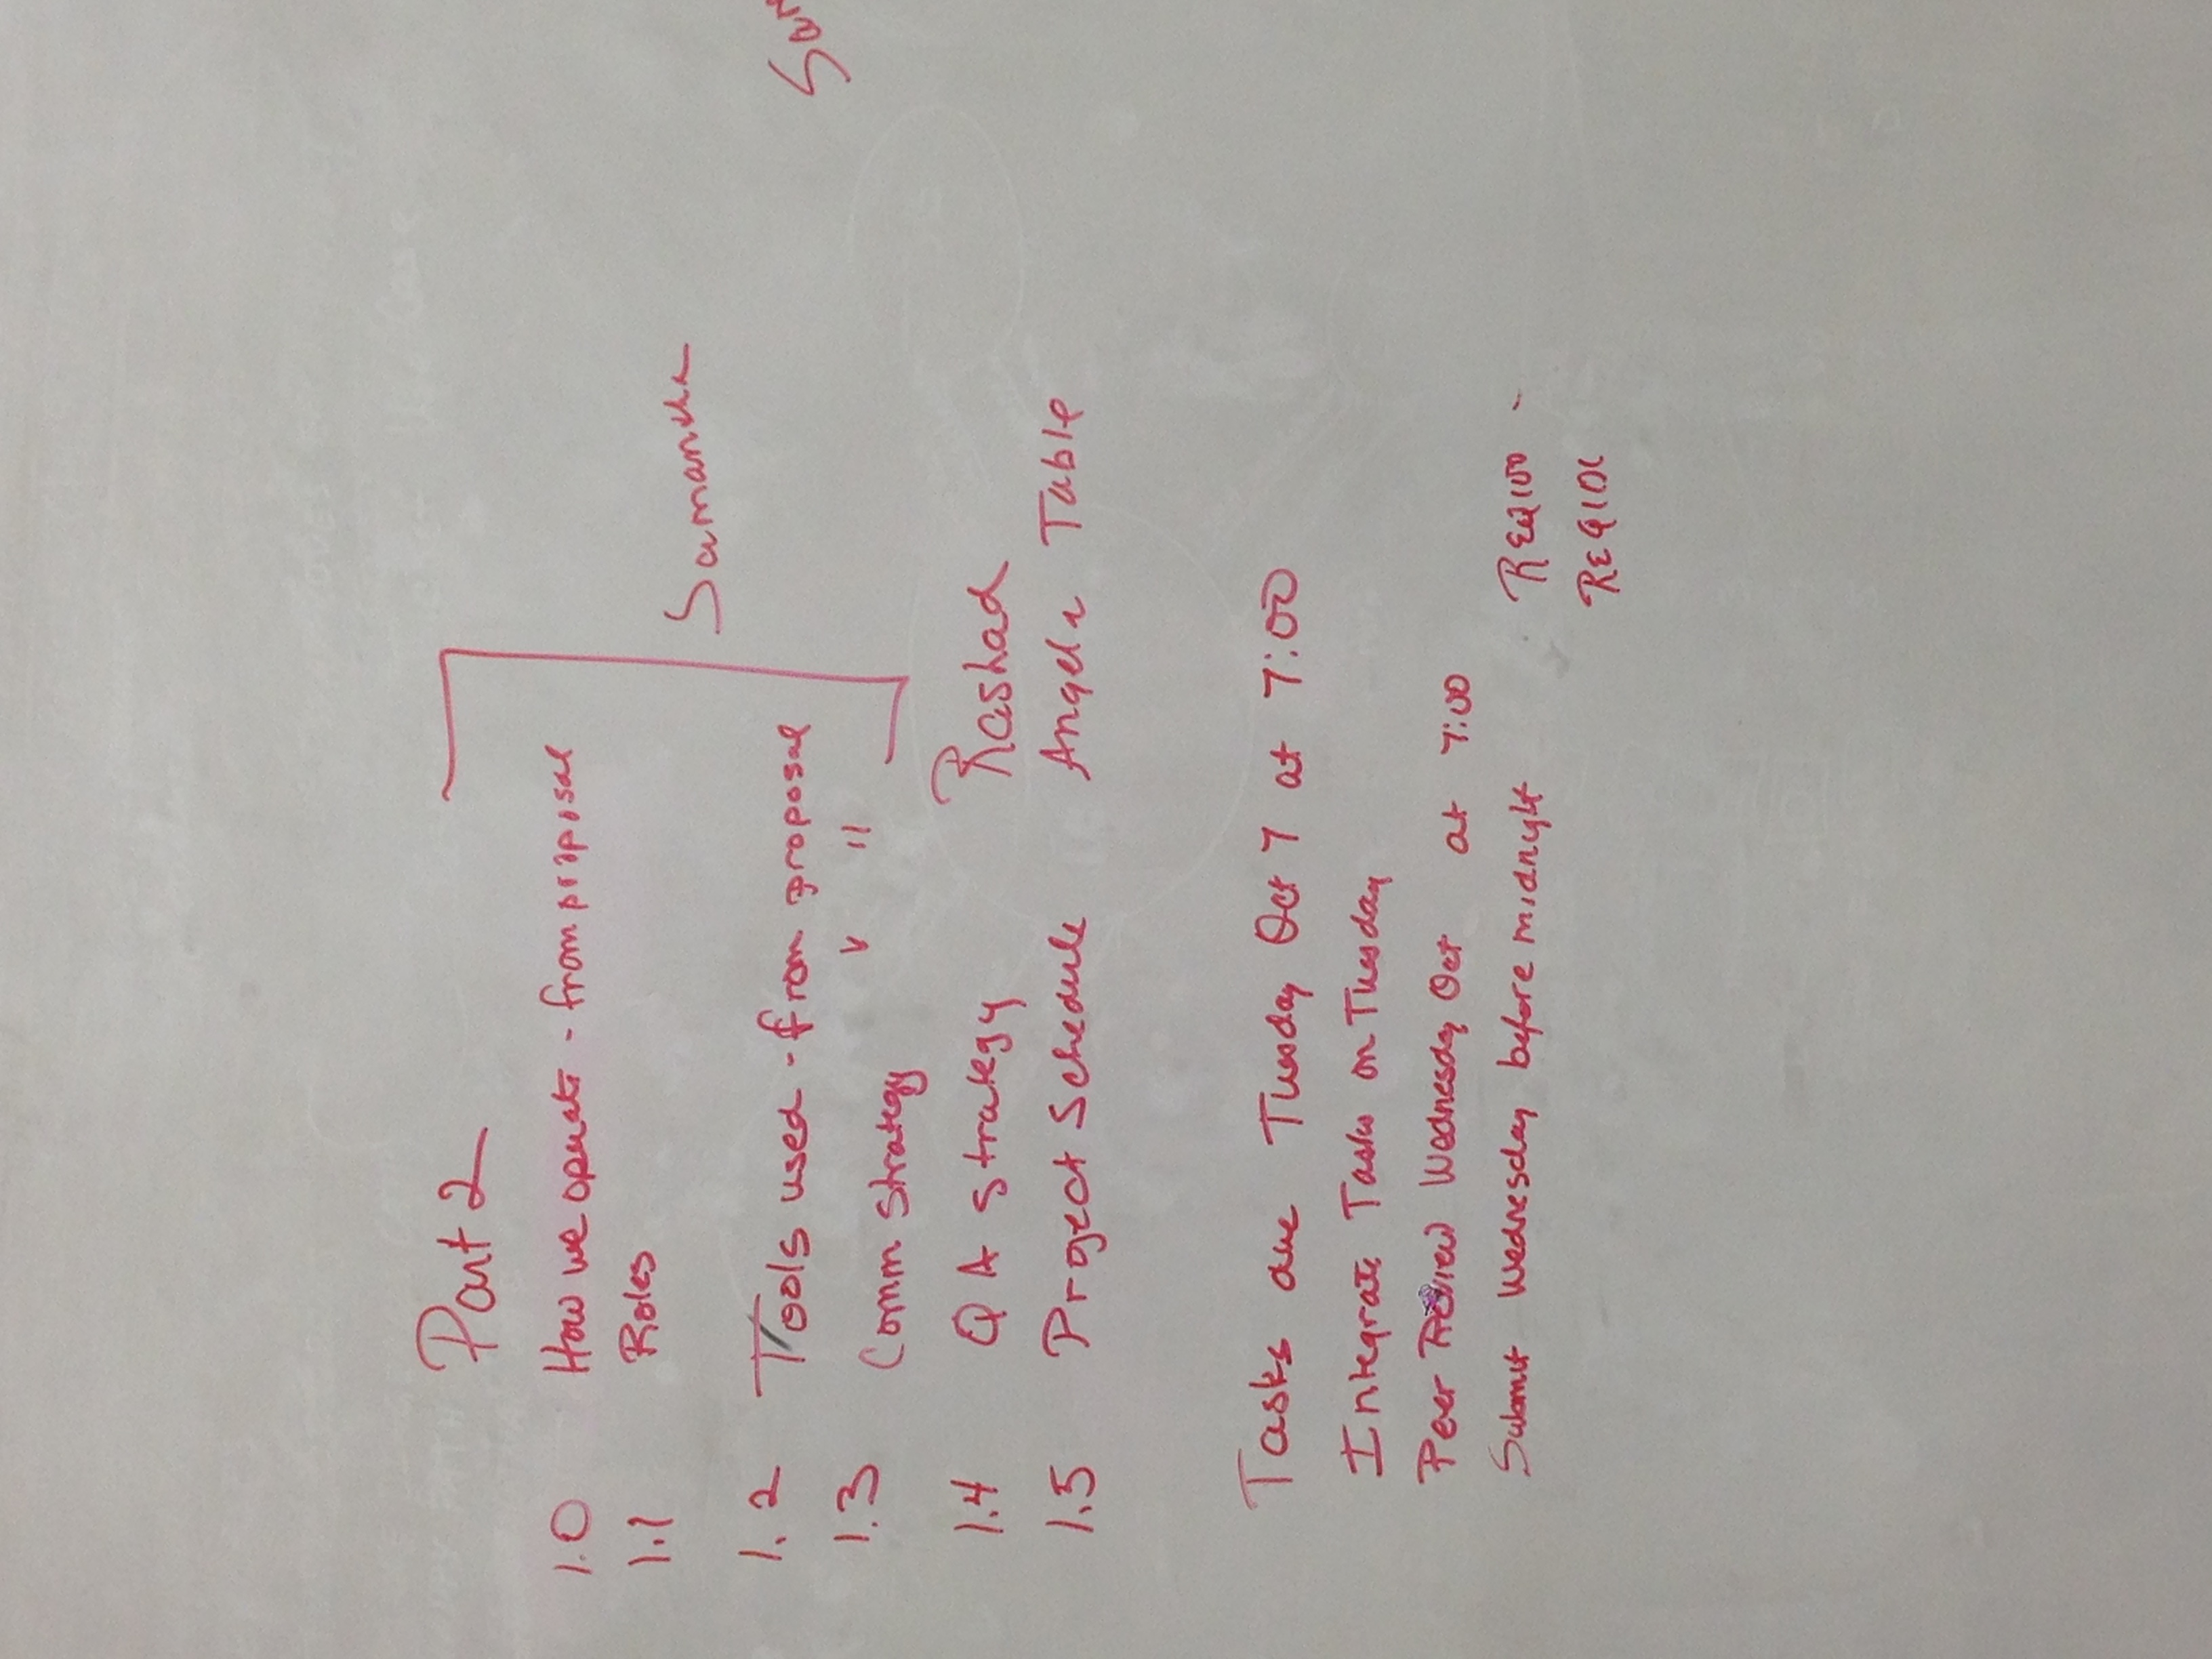 Part 2
1.0 How we operate - from proposal
1.1 Roles
Samantha
1.2 Tools used - from proposal
Sam
1.3 Comm Strategy " "
1.4 QA strategy Rashad
1.5 Project Schedule Angela Table
Tasks due Tuesday Oct 7 at 7:00
Integrate Tasks on Tuesday
Peer Review Wednesday Oct at 7:00
Submit Wednesday before midnight REQ100 -
REQ101